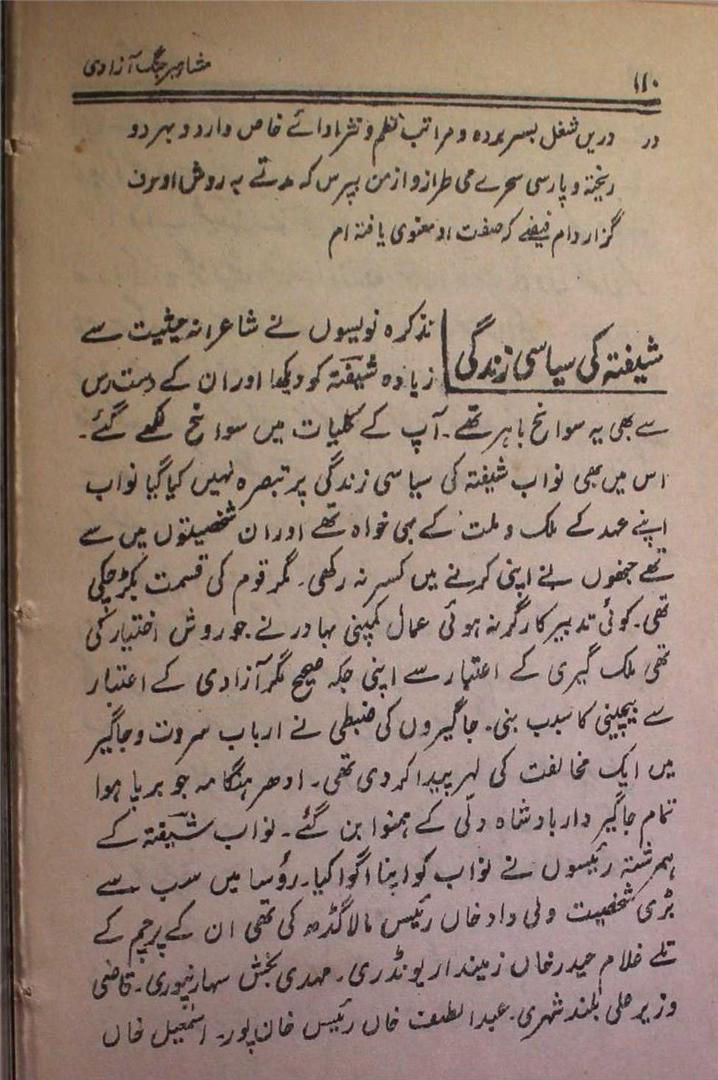 ۱۱۰
مشاہیر جنگ آزادی
در دریں شغل بسر بردہ و مراتب نظم و نثر ادائے خاص دارد و بہر دو
ریختہ و پارسی سحرے می طرازد از من بپرس کہ مدتے بہ روش او سرف
گزار دام فیضے کہ صفت او معنوی یافتہ ام
شیفتہ کی سیاسی زندگی
تذکرہ نویسوں نے شاعرانہ حیثیت سے
زیادہ شیفتہ کو دیکھا اور ان کے دست رس
سے بھی یہ سوانح باہر تھے۔ آپ کے کلیات میں سوانح لکھے گئے۔
اس میں بھی نواب شیفتہ کی سیاسی زندگی پر تبصرہ نہیں کیا گیا نواب
اپنے عہد کے ملک و ملت کے بہی خواہ تھے اور ان شخصیتوں میں سے
تھے جنھوں نے اپنی کرنے میں کسر نہ رکھی۔ مگر قوم کی قسمت بگڑ چکی
تھی۔ کوئی تدبیر کارگر نہ ہوئی عمال کمپنی بہادر نے جو روش اختیار کی
تھی ملک گیری کے اعتبار سے اپنی جگہ صحیح مگر آزادی کے اعتبار
سے بیچینی کا سبب بنی۔ جاگیروں کی ضبطی نے ارباب سروت و جاگیر
میں ایک مخالفت کی لہر پیدا کر دی تھی۔ ادھر ہنگامہ جو برپا ہوا
تمام جاگیر دار بادشاہ دلّی کے ہمنوا بن گئے۔ نواب شیفتہ کے
ہمرشتہ رئیسوں نے نواب کو اپنا اگوا کیا۔ رؤسا میں سب سے
بڑی شخصیت ولی داد خاں رئیس مالا گڈھ کی تھی ان کے پرچم کے
تلے غلام حیدر خاں زمیندار یونڈری۔ مہدی بخش سہارنپوری۔ قاضی
وزیر علی بلند شہری۔ عبد الطیف خاں رئیس خان پور۔ اسمٰعیل خاں